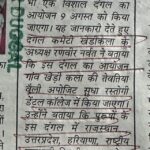 भी एक विशाल दंगल का
आयोजन 9 अगस्त को किया
जाएगा। यह जानकारी देते हुए
दंगल कमेटी खेड़ीकला के
अध्यक्ष रणवीर नर्वत ने बताया
कि इस दंगल का आयोजन
गांव खेड़ी कला की तेवतिया
अपोजिट सुधा रस्तोगी
डेंटल कॉलेज में किया जाएगा।
उन्होंने बताया कि पुरुषों के
इस दंगल में राजस्थान,
उत्तरप्रदेश, हरियाणा, राष्ट्रीय